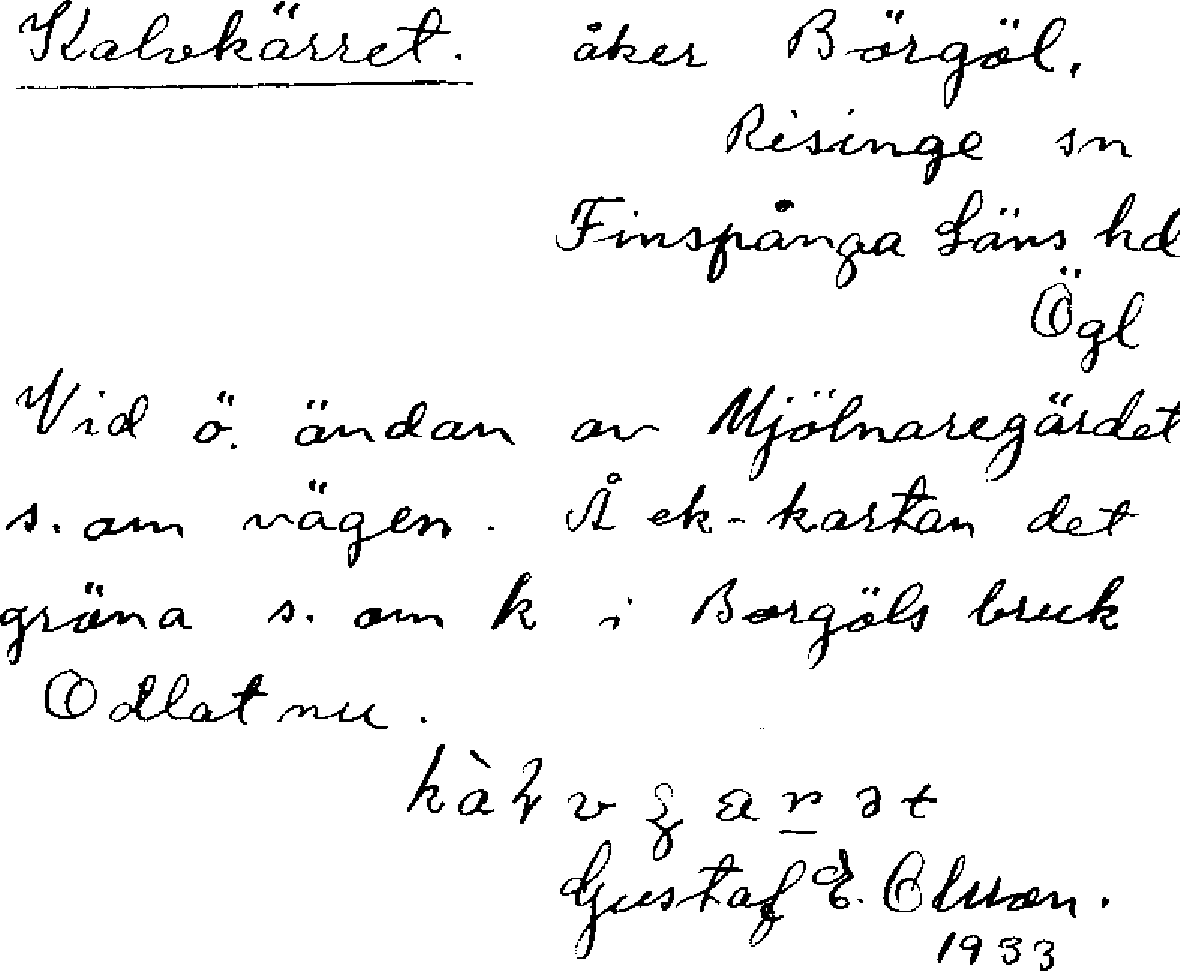 Kalvkärret. åker Börgöl.
Risinge sn
Finspånga Läns hd
Ögl
Vid ö. ändan av Mjölnaregärdet
s. om vägen. Å ek-kartan det
gröna s. om k i Borgöls bruk
Odlat nu.
Gustaf E. Olsson.
1933